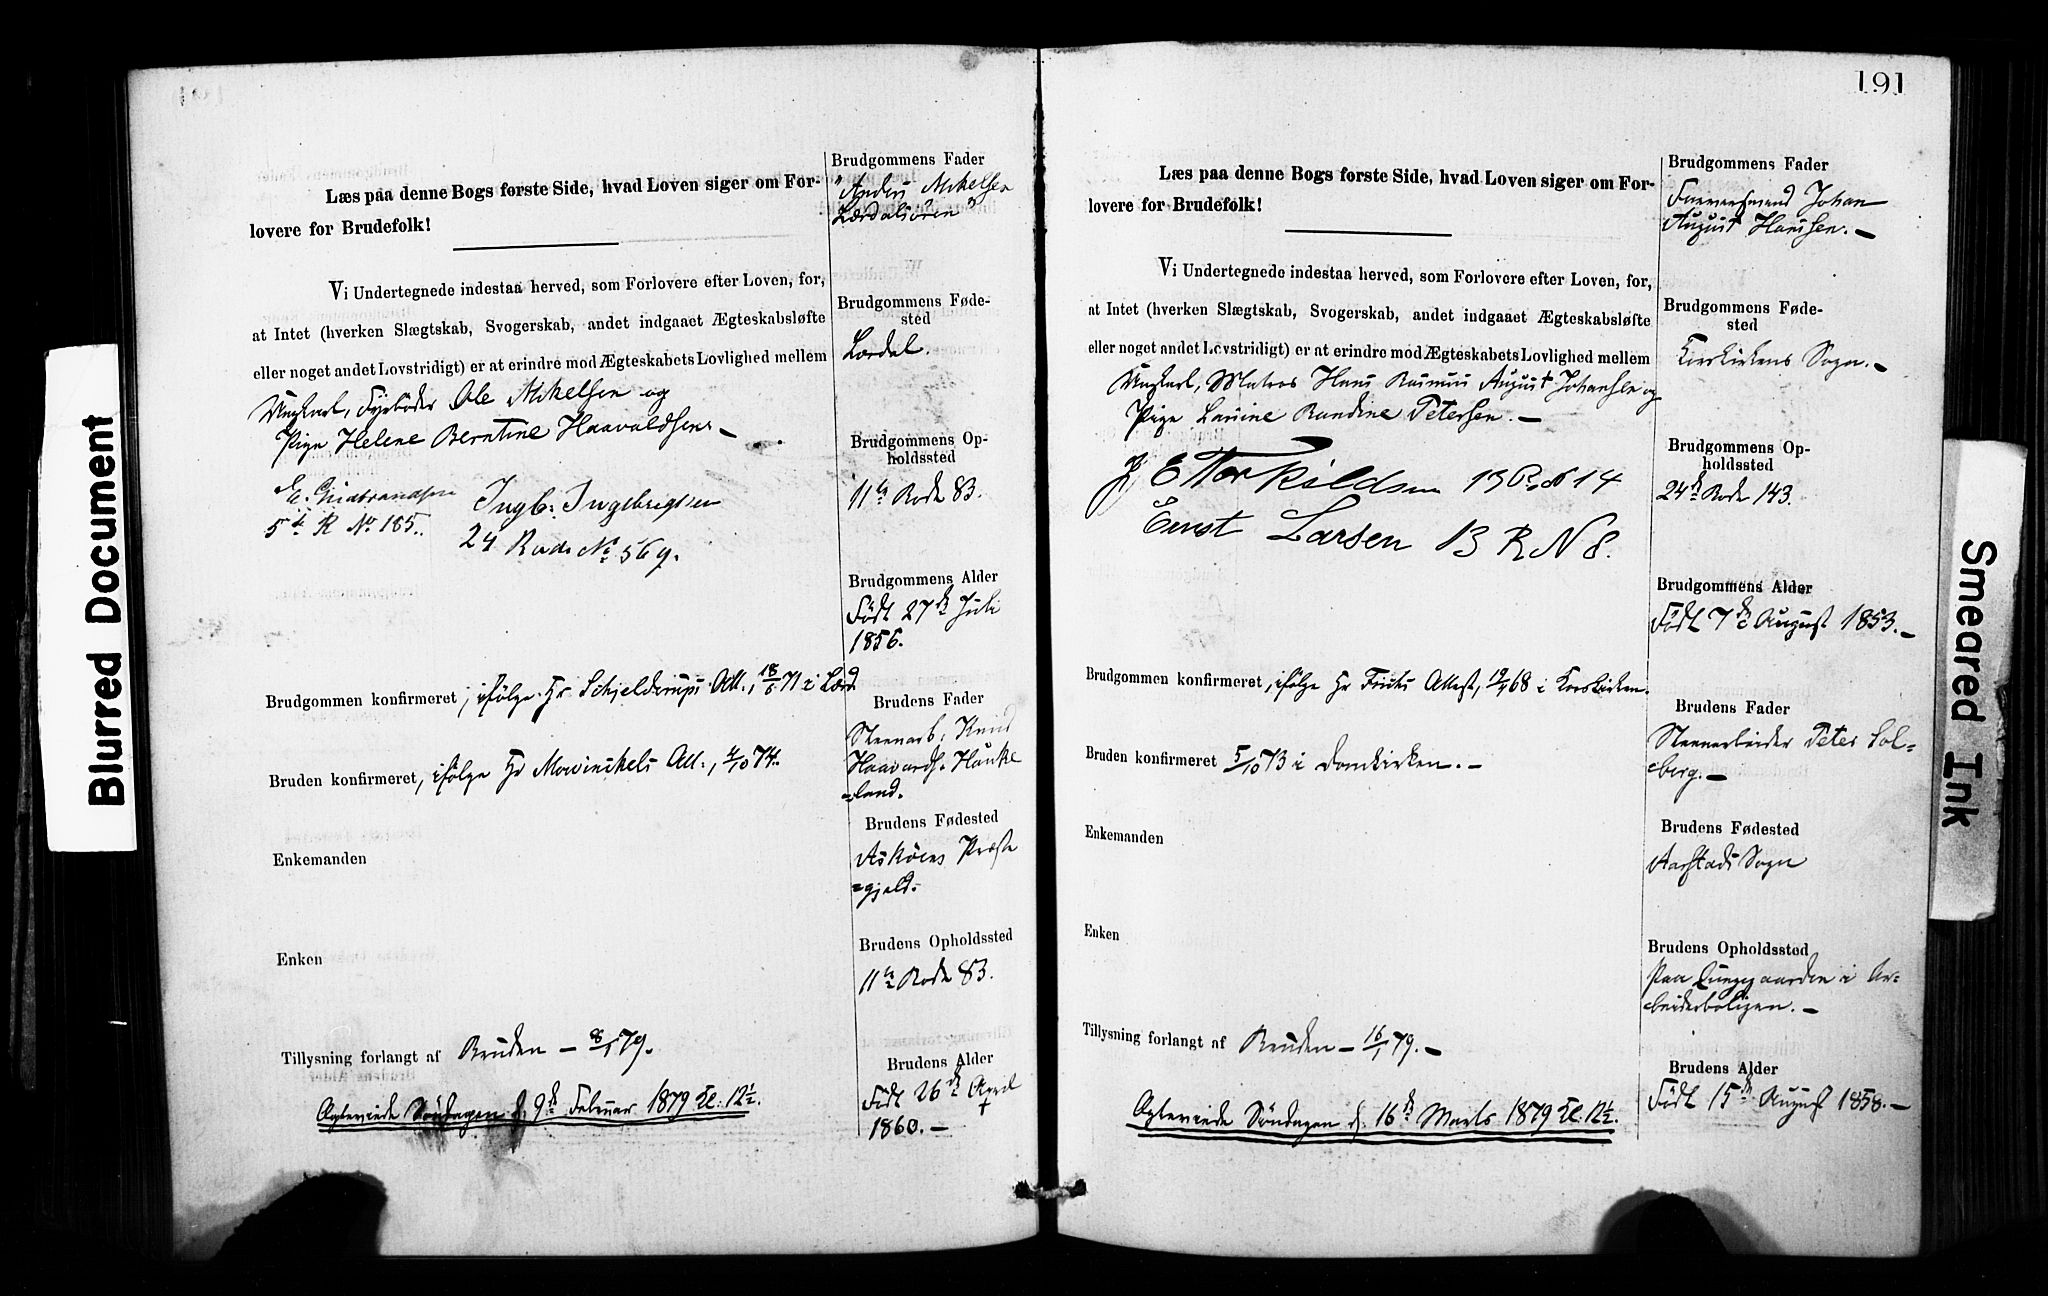 Blurred Document
Læs paa denne Bogs første Side, hvad Loven siger om For-
lovere for Brudefolk!
Vi Undertegnede indestaa herved, som Forlovere efter Loven, for,
at Intet (hverken Slægtskab, Svogerskab, andet indgaaet Ægteskabsløfte
eller noget andet Lovstridigt) er at erindre mod Ægteskabets Lovlighed mellem
Ungkarl, Fyrbøder Ole Mikelsen og
Pige Helene Berntine Haavaldsen. –
E. Gudbrandsen
5te R No 185.
Ingb. Ingebregtsen
24 Rode No 569.
Brudgommen konfirmeret, ifølge Hr Schjelderups Att., 18/6 71 i Lærd.
Bruden konfirmeret, ifølge Hr Mowinckels Att., 4/10 74.
Enkemanden
Enken
Tillysning forlangt af Bruden – 8/1 79.
Ægteviede Søndagen d. 9de Februar 1879 Kl. 12½.
Brudgommens Fader
"Anders Mikelsen
Lærdalsøren"
Brudgommens Føde-
sted
Lærdal.
Brudgommens Op-
holdssted
11te Rode 83.
Brudgommens Alder
Født 27de Juli
1856.
Brudens Fader
Steenarb. Knud
Haavards. Hauke
=land.
Brudens Fødested
Askøens Præste
=gjeld.
Brudens Opholdssted
11te Rode 83.
Brudens Alder
Født 26de April
1860. –
191
Læs paa denne Bogs første Side, hvad Loven siger om For-
lovere for Brudefolk!
Vi Undertegnede indestaa herved, som Forlovere efter Loven, for,
at Intet (hverken Slægtskab, Svogerskab, andet indgaaet Ægteskabsløfte
eller noget andet Lovstridigt) er at erindre mod Ægteskabets Lovlighed mellem
Ungkarl, Matros Hans Rasmus August Johansen og
Pige Lauine Randine Petersen. –
E Torkildsen 13 R No 14
Ernst Larsen 13 R N 8.
Brudgommen konfirmeret, ifølge Hr Friches Attest, 19/4 68 i Korskirken.
Bruden konfirmeret 5/10 73 i Domkirken. –
Enkemanden
Enken
Tillysning forlangt af Bruden – 16/1 79. –
Ægteviede Søndagen d. 16de Marts 1879 Kl. 12½.
Brudgommens Fader
Tømmermand Johan
August Hansen. –
Brudgommens Føde-
sted
Korskirkens Sogn. –
Brudgommens Op-
holdssted
24de Rode 143.
Brudgommens Alder
Født 7de August 1853. –
Brudens Fader
Steenarbeider Peter Sol=
=berg. –
Brudens Fødested
Aarstads Sogn
Brudens Opholdssted
Paa Lungegaarden i Ar=
=beiderboligen. –
Brudens Alder
Født 15de August 1858. –
Smeared Ink